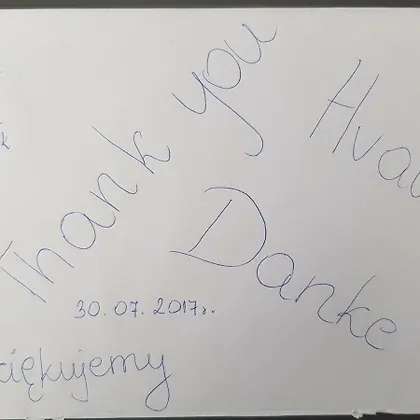 Thank you
Hva
Danke
30.07.2017r.
ciękujemy